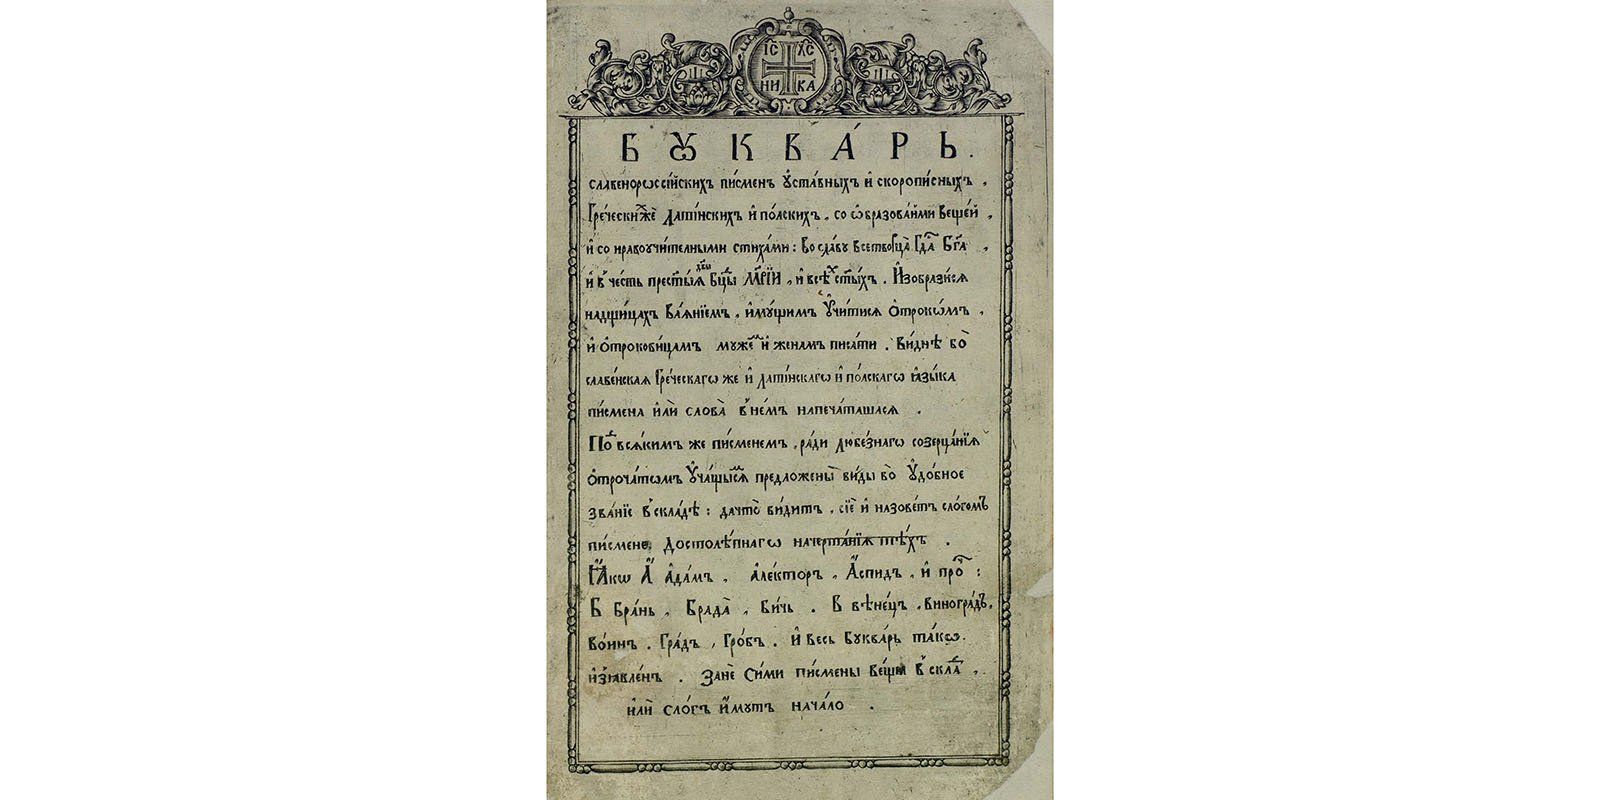 ІС ХС
НИ КА
БꙊКВА́РЬ.
славеноршссі́йскихъ пи́сменъ ᲂу҆ста́вныхъ и҆ скоропи́сныхъ,
Гре́ческихже Лати́нскихъ и҆ по́лскихъ, со ѡ҆бразова́ньми веще́й,
и҆ со нравоучи́телными стиха́ми: во сла́ву всетворца̀ Гд҇а Бг҃а,
и҆ в̾ че́сть прест҃ы́ѧ дв҃ы бц҃ы МАРІ́И, и҆ всѣ́х ст҃ы́хъ. И҆зобрази́сѧ
на дщи́цахъ ваѧ́нїемъ, и҆мꙋ́щимъ ᲂу҆чи́тисѧ ѻ҆трокѡ́мъ,
и҆ ѻ҆трокови́цамъ мꙋже́м и҆ жена́м писа́ти. Ви́днѣ бо̀
славе́нскаѧ Гре́ческагѡ же и҆ лати́нскагѡ и҆ по́лскагѡ ꙗ҆зы́ка
пи́смена и҆лѝ слова̀ в̾ не́мъ напеча́ташасѧ.
По́д всѧ́кимъ же пи́сменемъ, ра́ди любе́знагѡ созерца́нїѧ
ѻ҆троча́тѡмъ ᲂу҆ча́щымсѧ предложены̀ ви́ды во ᲂу҆до́бное
зва́нїе в̾ скла́дѣ: да что̀ ви́дитъ, сїѐ и҆ назове́тъ сло́гомъ
пи́смене, достолѣ́пнагѡ начерта́нїѧ тѣ́хъ.
Ꙗ҆́кѡ А҆̀ А҆да́мъ, А҆ле́кторъ, А҆́спидъ, и҆ про́ч:
Б Бра́нь, Брада̀, Би́чь. В Вѣне́цъ, виногра́дъ,
во́инъ. Гра́дъ, Гро́бъ. И҆ ве́сь Бꙋква́рь та́кѡ
и҆з̾ѧвле́нъ. Занѐ Си́ми пи́смены ве́щи в̾ скла́д,
и҆лѝ сло́гъ и҆́мꙋтъ нача́ло.